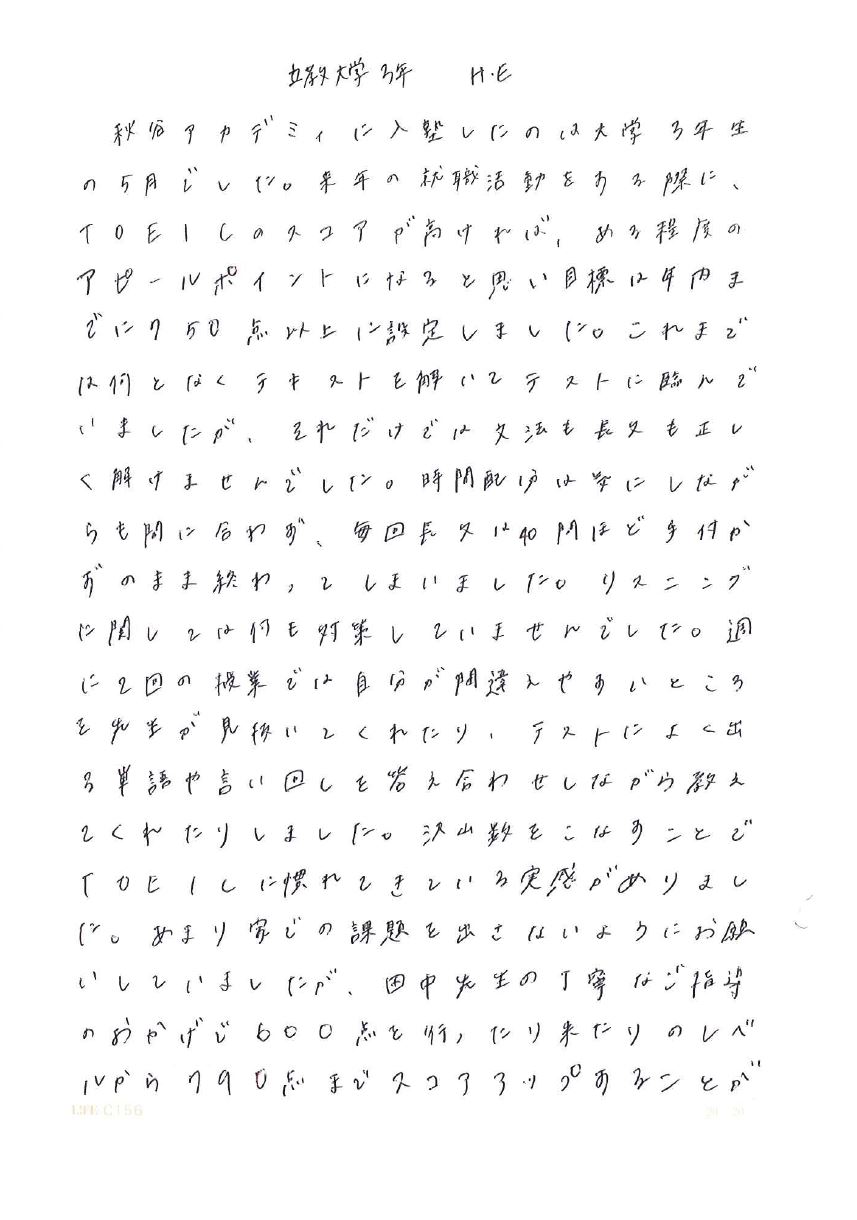 立教大学3年 H.E
秋谷アカデミィに入塾したのは大学3年生
の5月でした。来年の就職活動をする際に、
TOEICのスコアが高ければ、ある程度の
アピールポイントになると思い目標は年内ま
でに750点以上に設定しました。これまで
は何となくテキストを解いてテストに臨んで
いましたが、それだけでは文法も長文も正し
く解けませんでした。時間配分は気にしなが
らも間に合わず、毎回長文は40問ほど手付か
ずのまま終わってしまいました。リスニング
に関しては何も対策していませんでした。週
に2回の授業では自分が間違えやすいところ
を先生が見抜いてくれたり、テストによく出
る単語や言い回しを答え合わせしながら教え
てくれたりしました。沢山数をこなすことで
TOEICに慣れてきている実感がありまし
た。あまり家での課題を出さないようにお願
いしていましたが、田中先生の丁寧なご指導
のおかげで600点を行ったり来たりのレベ
ルから790点までスコアアップすることが
LIFE C156
20 20